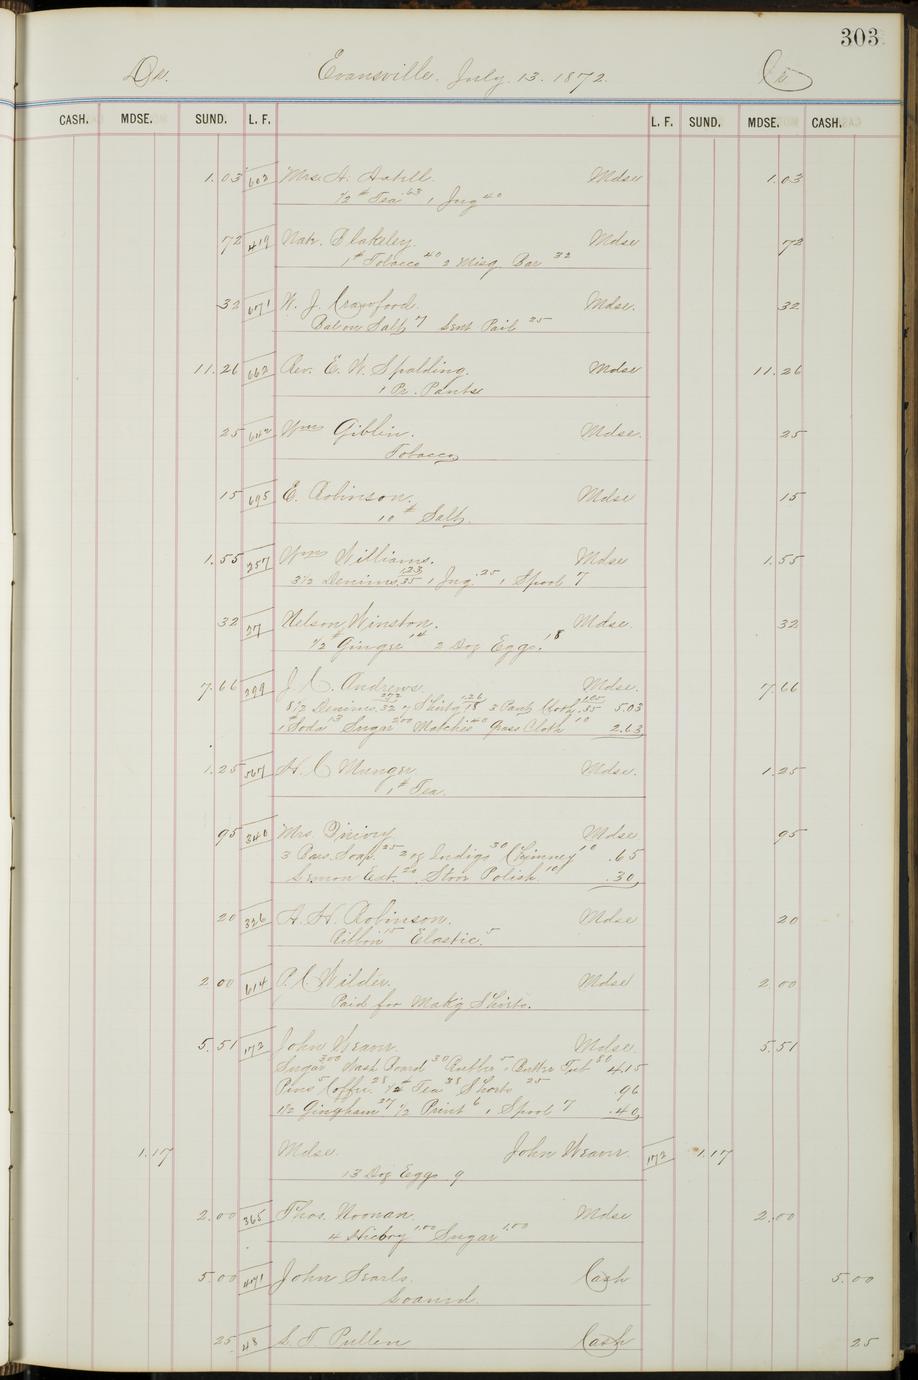 303
Dr. Evansville. July. 13. 1872. Cr
CASH. MDSE. SUND. L. F. L. F. SUND. MDSE. CASH.
1.03 602 Mrs. H. Mdse 1.03
1/2 # Tea 63 1 Jug 40
72 419 Natr. Blakeley. Mdse 72
1# Tobacco 40 2 Misq. Bar 32
32 671 W. J. Crawford. Mdse. 32
Salts 7 Pail 25
11.26 662 Rev. E. W. Spalding. Mdse 11.26
1 Pr. Pants
25 642 Wm Giblin. Mdse. 25
Tobacco
15 695 E. Robinson. Mdse 15
10 # Salt.
1.55 257 Wm Williams. Mdse 1.55
3 1/2 Denims 1.23 35 1 Jug. 25 1 Spool 7
32 27 Nelson Winston. Mdse. 32
1/2 # Ginger 14 2 Doz Eggs. 18
7.66 299 J. C. Andrews. Mdse. 7.66
8 1/2 Denims 272 32 7 Shirtg 1.26 18 3 Pant Cloth 1.05 35 5.03
1 # Soda 13 Sugar 2.00 Matches 40 Grass Cloth 10 2.63
1.25 567 H. C Munger Mdse. 1.25
1 # Tea.
95 340 Mrs. Mdse 95
3 Bars Soap. 25 2 oz Indigo 30 Chimney 10 .65
Lemon Ext. 20 Stove Polish 10 .30
20 326 A. H. Robinson. Mdse 20
Ribbon 15 Elastic. 5
2 00 614 P. C. Wilder. Mdse 2 00
Paid for Makg Shirts.
5.51 172 John Weaver Mdse. 5.51
Sugar 3.00 Wash Board 30 5 Butter Tub 80 4.15
Pins 5 Coffee. 28 1/2 # Tea 38 Shorts 25 .96
1 1/2 Gingham 27 1/2 Print 6 1 Spool 7 .40
1.17 Mdse. John Weaver 172 1.17
13 Doz Eggs 9
2.00 365 Thos. Noonan. Mdse 2.00
4 Hickory 1.00 Sugar 1.00
5.00 471 John Searls. Cash 5.00
Loaned.
25 48 S. T. Pullen Cash 25